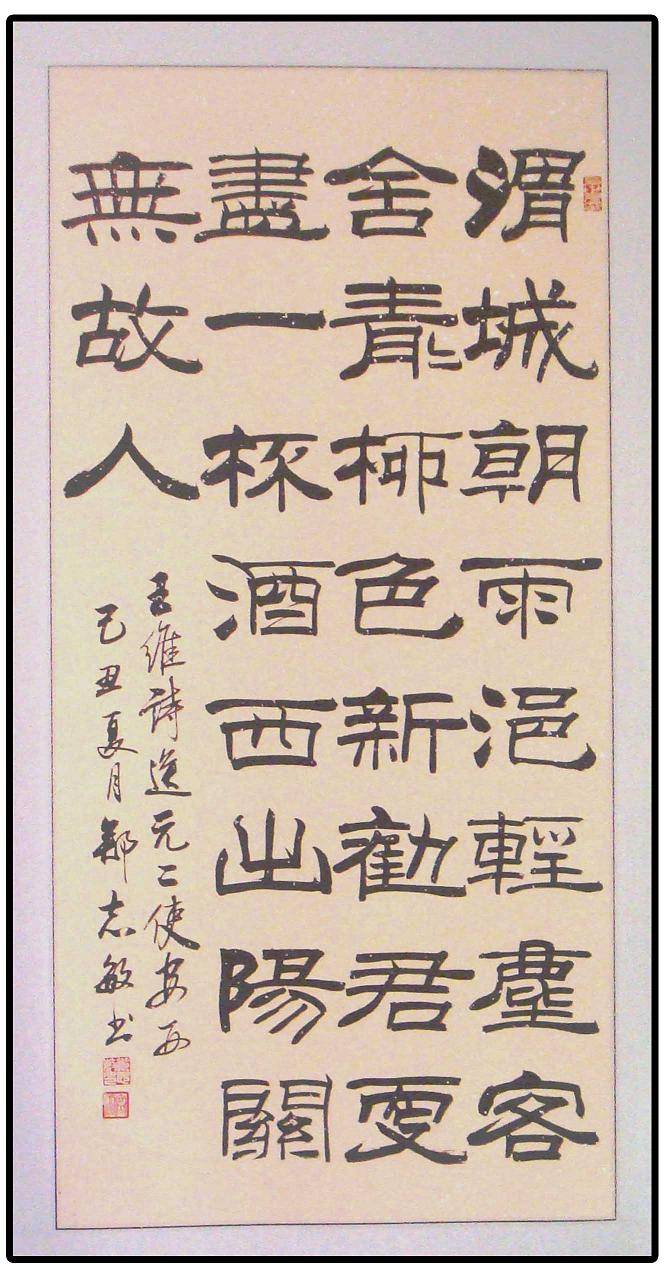 渭城朝雨浥輕塵客
舍青〻柳色新勸君更
盡一杯酒西出陽關
無故人
王維詩送元二使安西
己丑夏月鄭志敏书